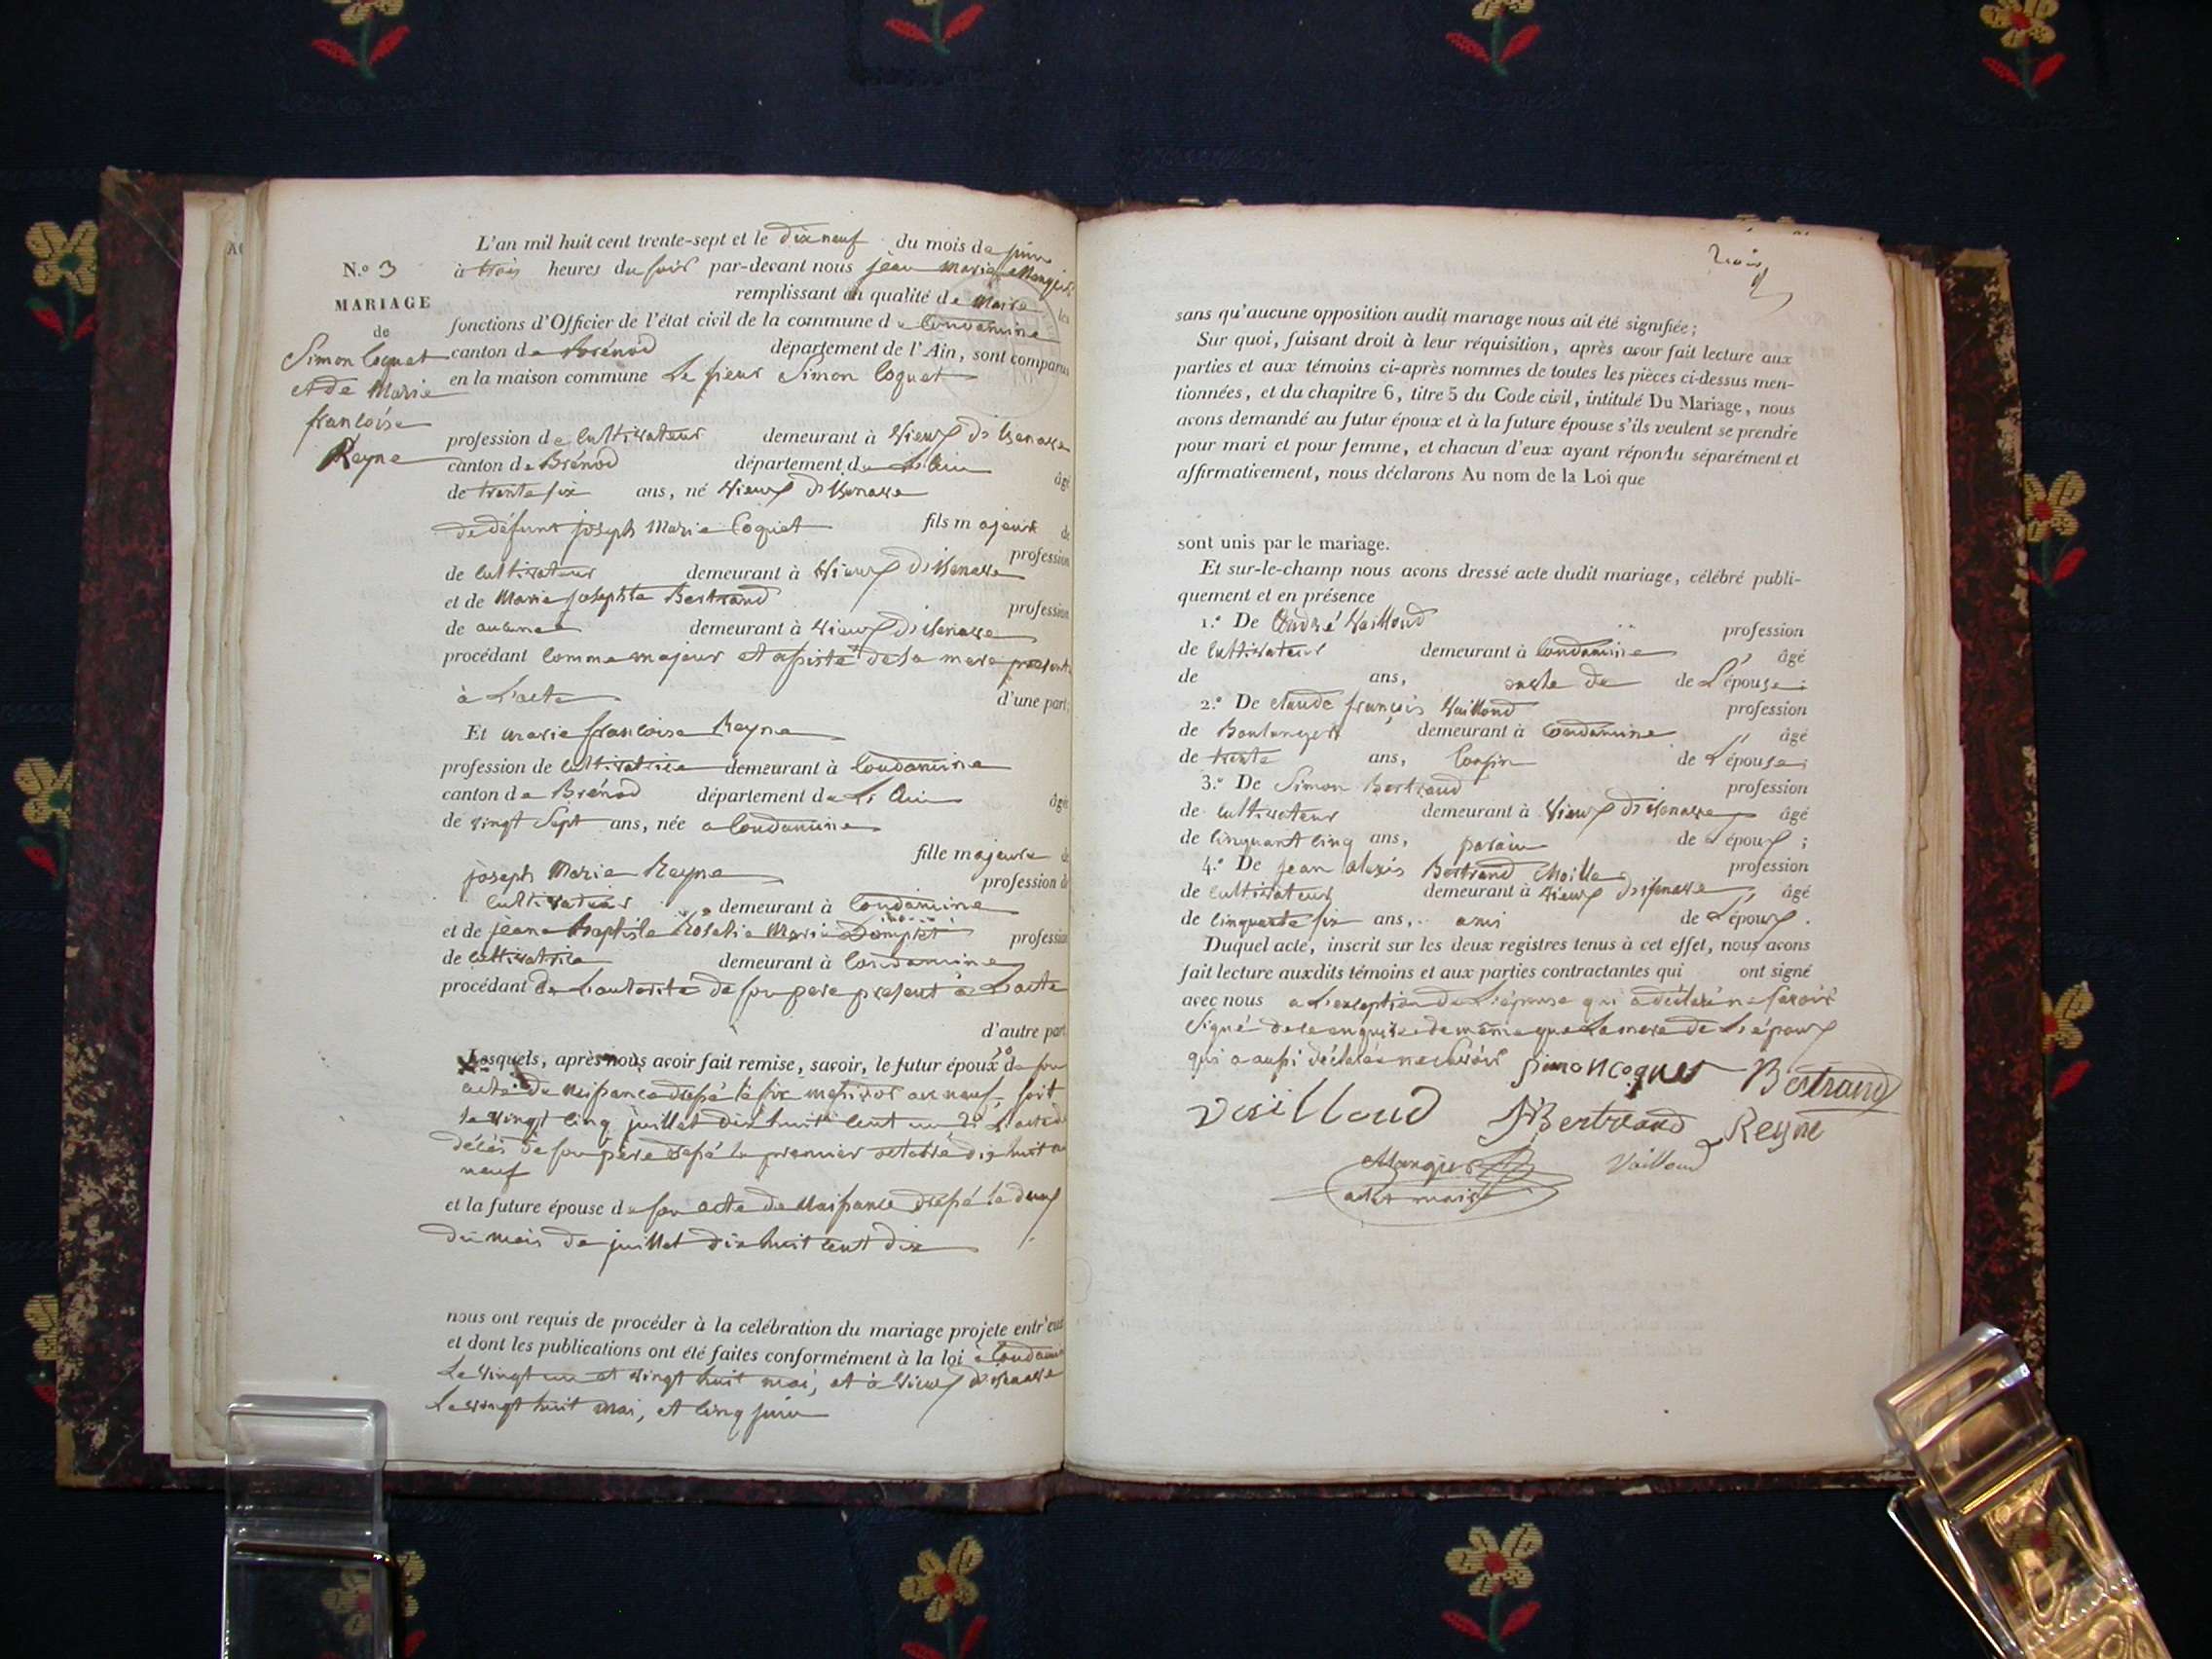 L'an mil huit cent trente-sept et le dix neuf du mois de juin
N.o 3
à trois heures du soir par-devant nous jean Marie
MARIAGE
remplissant en qualité de Maire les
de
fonctions d'Officier de l'état civil de la commune de Condamine
Simon Coquet
canton de Brénod département de l'Ain, sont comparus
et de Marie
en la maison commune Le sieur Simon Coquet
françoise
Reyne
profession de Cultivateur demeurant à Vieux d'izenave
canton de Brénod département de L'Ain âgé
de trente six ans, né Vieux d'izenave
fils majeur de
de défunt joseph Marie Coquet profession
de Cultivateur demeurant à Vieux d'izenave
et de Marie josephte Bertrand profession
de aucune demeurant à Vieux d'izenave
procédant Comme majeur et assisté de sa mere présente
à L'acte d'une part;
Et marie françoise Reyne
profession de Cultivatrice demeurant à Condamine
canton de Brénod département de L'Ain âgée
de vingt Sept ans, née a Condamine
fille majeure de
joseph Marie Reyne profession de
Cultivateur demeurant à Condamine
et de jeane Baptiste Rosalie Marie profession
de Cultivatrice demeurant à Condamine
procédant de L'autorité de son pere présent à L'acte
d'autre part.
Lesquels, après nous avoir fait remise, savoir, le futur époux de son
acte de naissance dressé le six an neuf, soit
le vingt cinq juillet dix huit cent un di L'acte de
décès de son père dressé le premier octobre dix huit cent
neuf
et la future épouse de son acte de Naissance dressé le deux
du mois de juillet dix huit cent dix
nous ont requis de procéder à la célébration du mariage projeté entr'eux
et dont les publications ont été faites conformément à la loi à Condamine
Le vingt un et vingt huit mai, et à Vieux d'izenave
Le vingt huit mai, et cinq juin
trois
sans qu'aucune opposition audit mariage nous ait été signifiée;
Sur quoi, faisant droit à leur réquisition, après avoir fait lecture aux
parties et aux témoins ci-après nommes de toutes les pièces ci-dessus men-
tionnées, et du chapitre 6, titre 5 du Code civil, intitulé Du Mariage, nous
avons demandé au futur époux et à la future épouse s'ils veulent se prendre
pour mari et pour femme, et chacun d'eux ayant répondu séparément et
affirmativement, nous déclarons Au nom de la Loi que
sont unis par le mariage.
Et sur-le-champ nous avons dressé acte dudit mariage, célébré publi-
quement et en présence
1.o De André Vailloud profession
de Cultivateur demeurant à Condamine âgé
de ans, oncle de de L'épouse;
2.o De Claude françois Vailloud profession
de Boulanger demeurant à Condamine âgé
de trente ans, Cousin de L'épouse;
3.o De Simon Bertrand profession
de Cultivateur demeurant à Vieux d'izenave âgé
de Cinquant Cinq ans, parain de L'époux;
4.o De jean alexis Bertrand profession
de Cultivateur demeurant à Vieux d'izenave, âgé
de Cinquante six ans, ami de L'époux.
Duquel acte, inscrit sur les deux registres tenus à cet effet, nous avons
fait lecture auxdits témoins et aux parties contractantes qui ont signé
avec nous a L'exception de L'épouse qui a déclaré ne Savoir
Signé de ce enquise de même que La mere de L'époux
qui a aussi déclaré ne Savoir Simon Coquet Bertrand
Vailloud Bertrand Reyne
Vailloud
maire